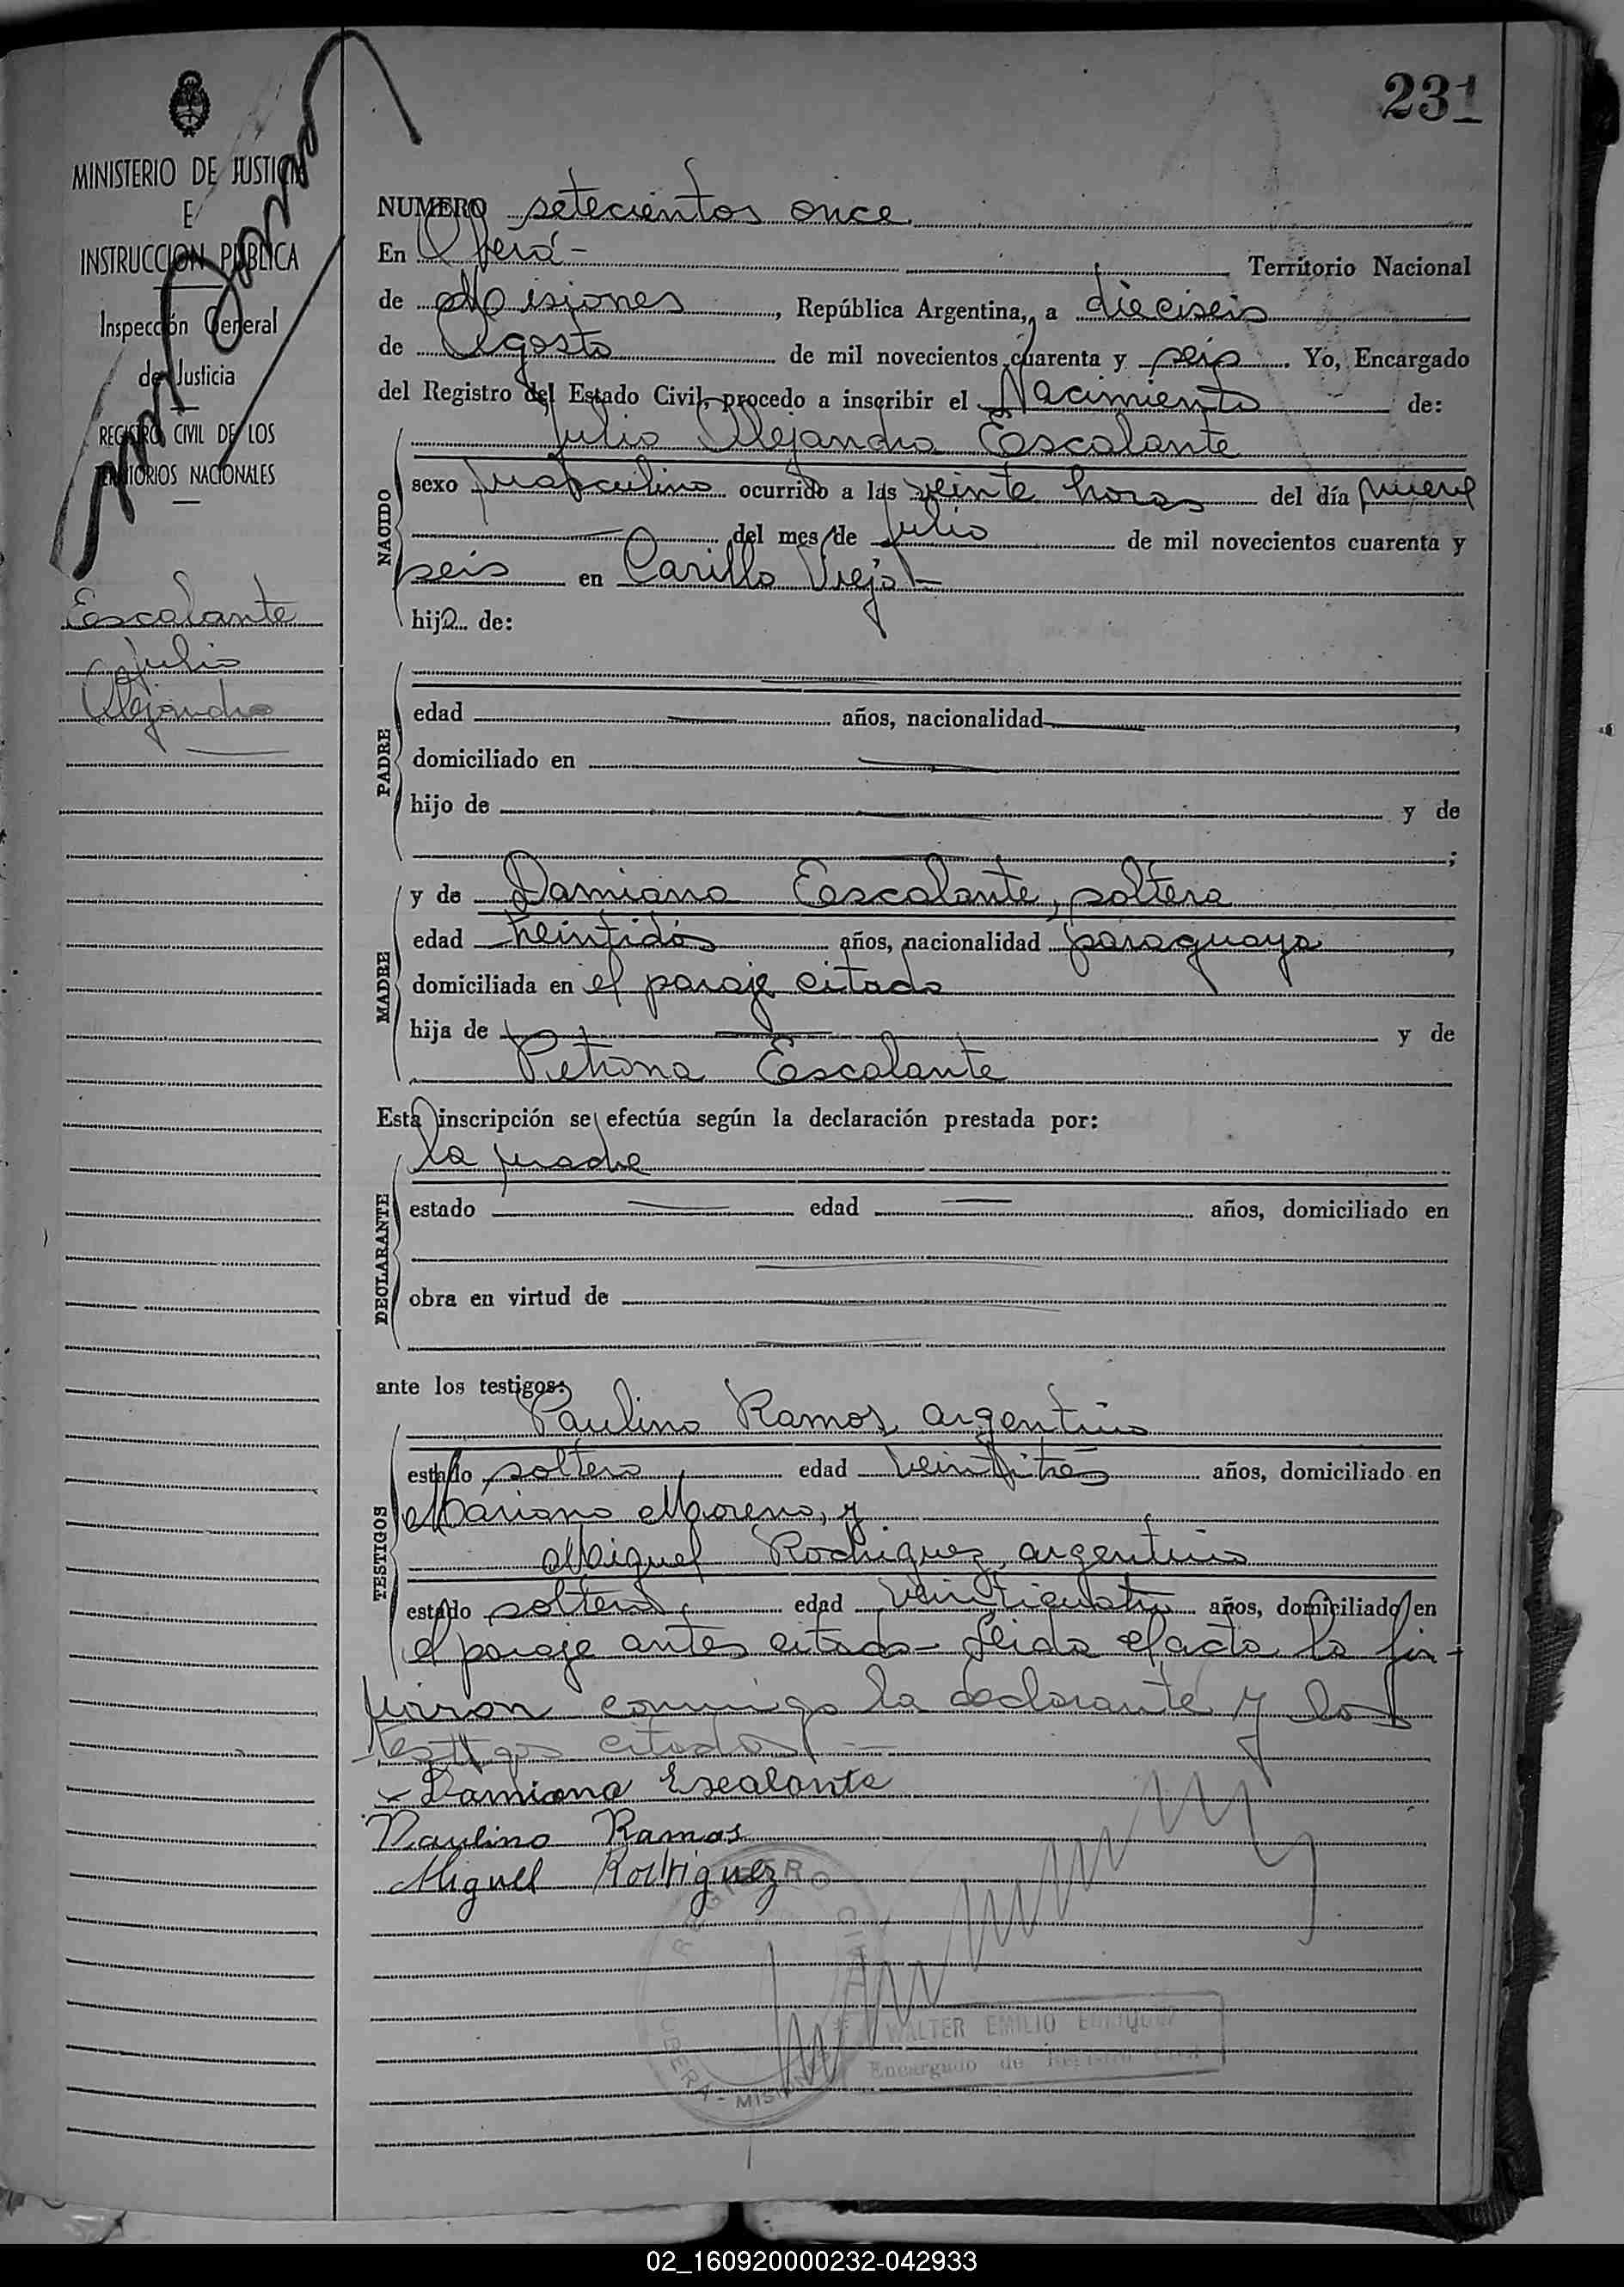 231
MINISTERIO DE JUSTICIA
E
INSTRUCCION PUBLICA
Inspección General
de Justicia
REGISTRO CIVIL DE LOS
TERRITORIOS NACIONALES
Escalante
Julio
Alejandro
NUMERO setecientos once
En Oberá - Territorio Nacional
de Misiones, República Argentina, a dieciseis
de Agosto de mil novecientos cuarenta y seis. Yo, Encargado
del Registro del Estado Civil, procedo a inscribir el Nacimiento de:
NACIDO
Julio Alejandro Escalante
sexo masculino ocurrido a las veinte horas del día nueve
del mes de Julio de mil novecientos cuarenta y
seis en Carillo Viejo -
hijo de:
PADRE
edad años, nacionalidad
domiciliado en
hijo de y de
;
MADRE
y de Damiana Escalante, soltera
edad veintidós años, nacionalidad paraguaya,
domiciliada en el paraje citado
hija de y de
Petrona Escalante
Esta inscripción se efectúa según la declaración prestada por:
DECLARANTE
la madre
estado edad años, domiciliado en
obra en virtud de
ante los testigos:
TESTIGOS
Paulino Ramos, argentino
estado soltero, edad veintitrés años, domiciliado en
Mariano Moreno, y
Miguel Rodriguez, argentino
estado soltero, edad veinticuatro años, domiciliado en
el paraje antes citado - Leida el acta la fir-
maron conmigo la declarante y los
testigos citados -
x Damiana Escalante
Paulino Ramos
Miguel Rodriguez
REGISTRO CIVIL
OBERA - MISIONES
WALTER EMILIO
Encargado de Registro Civil
02_160920000232-042933